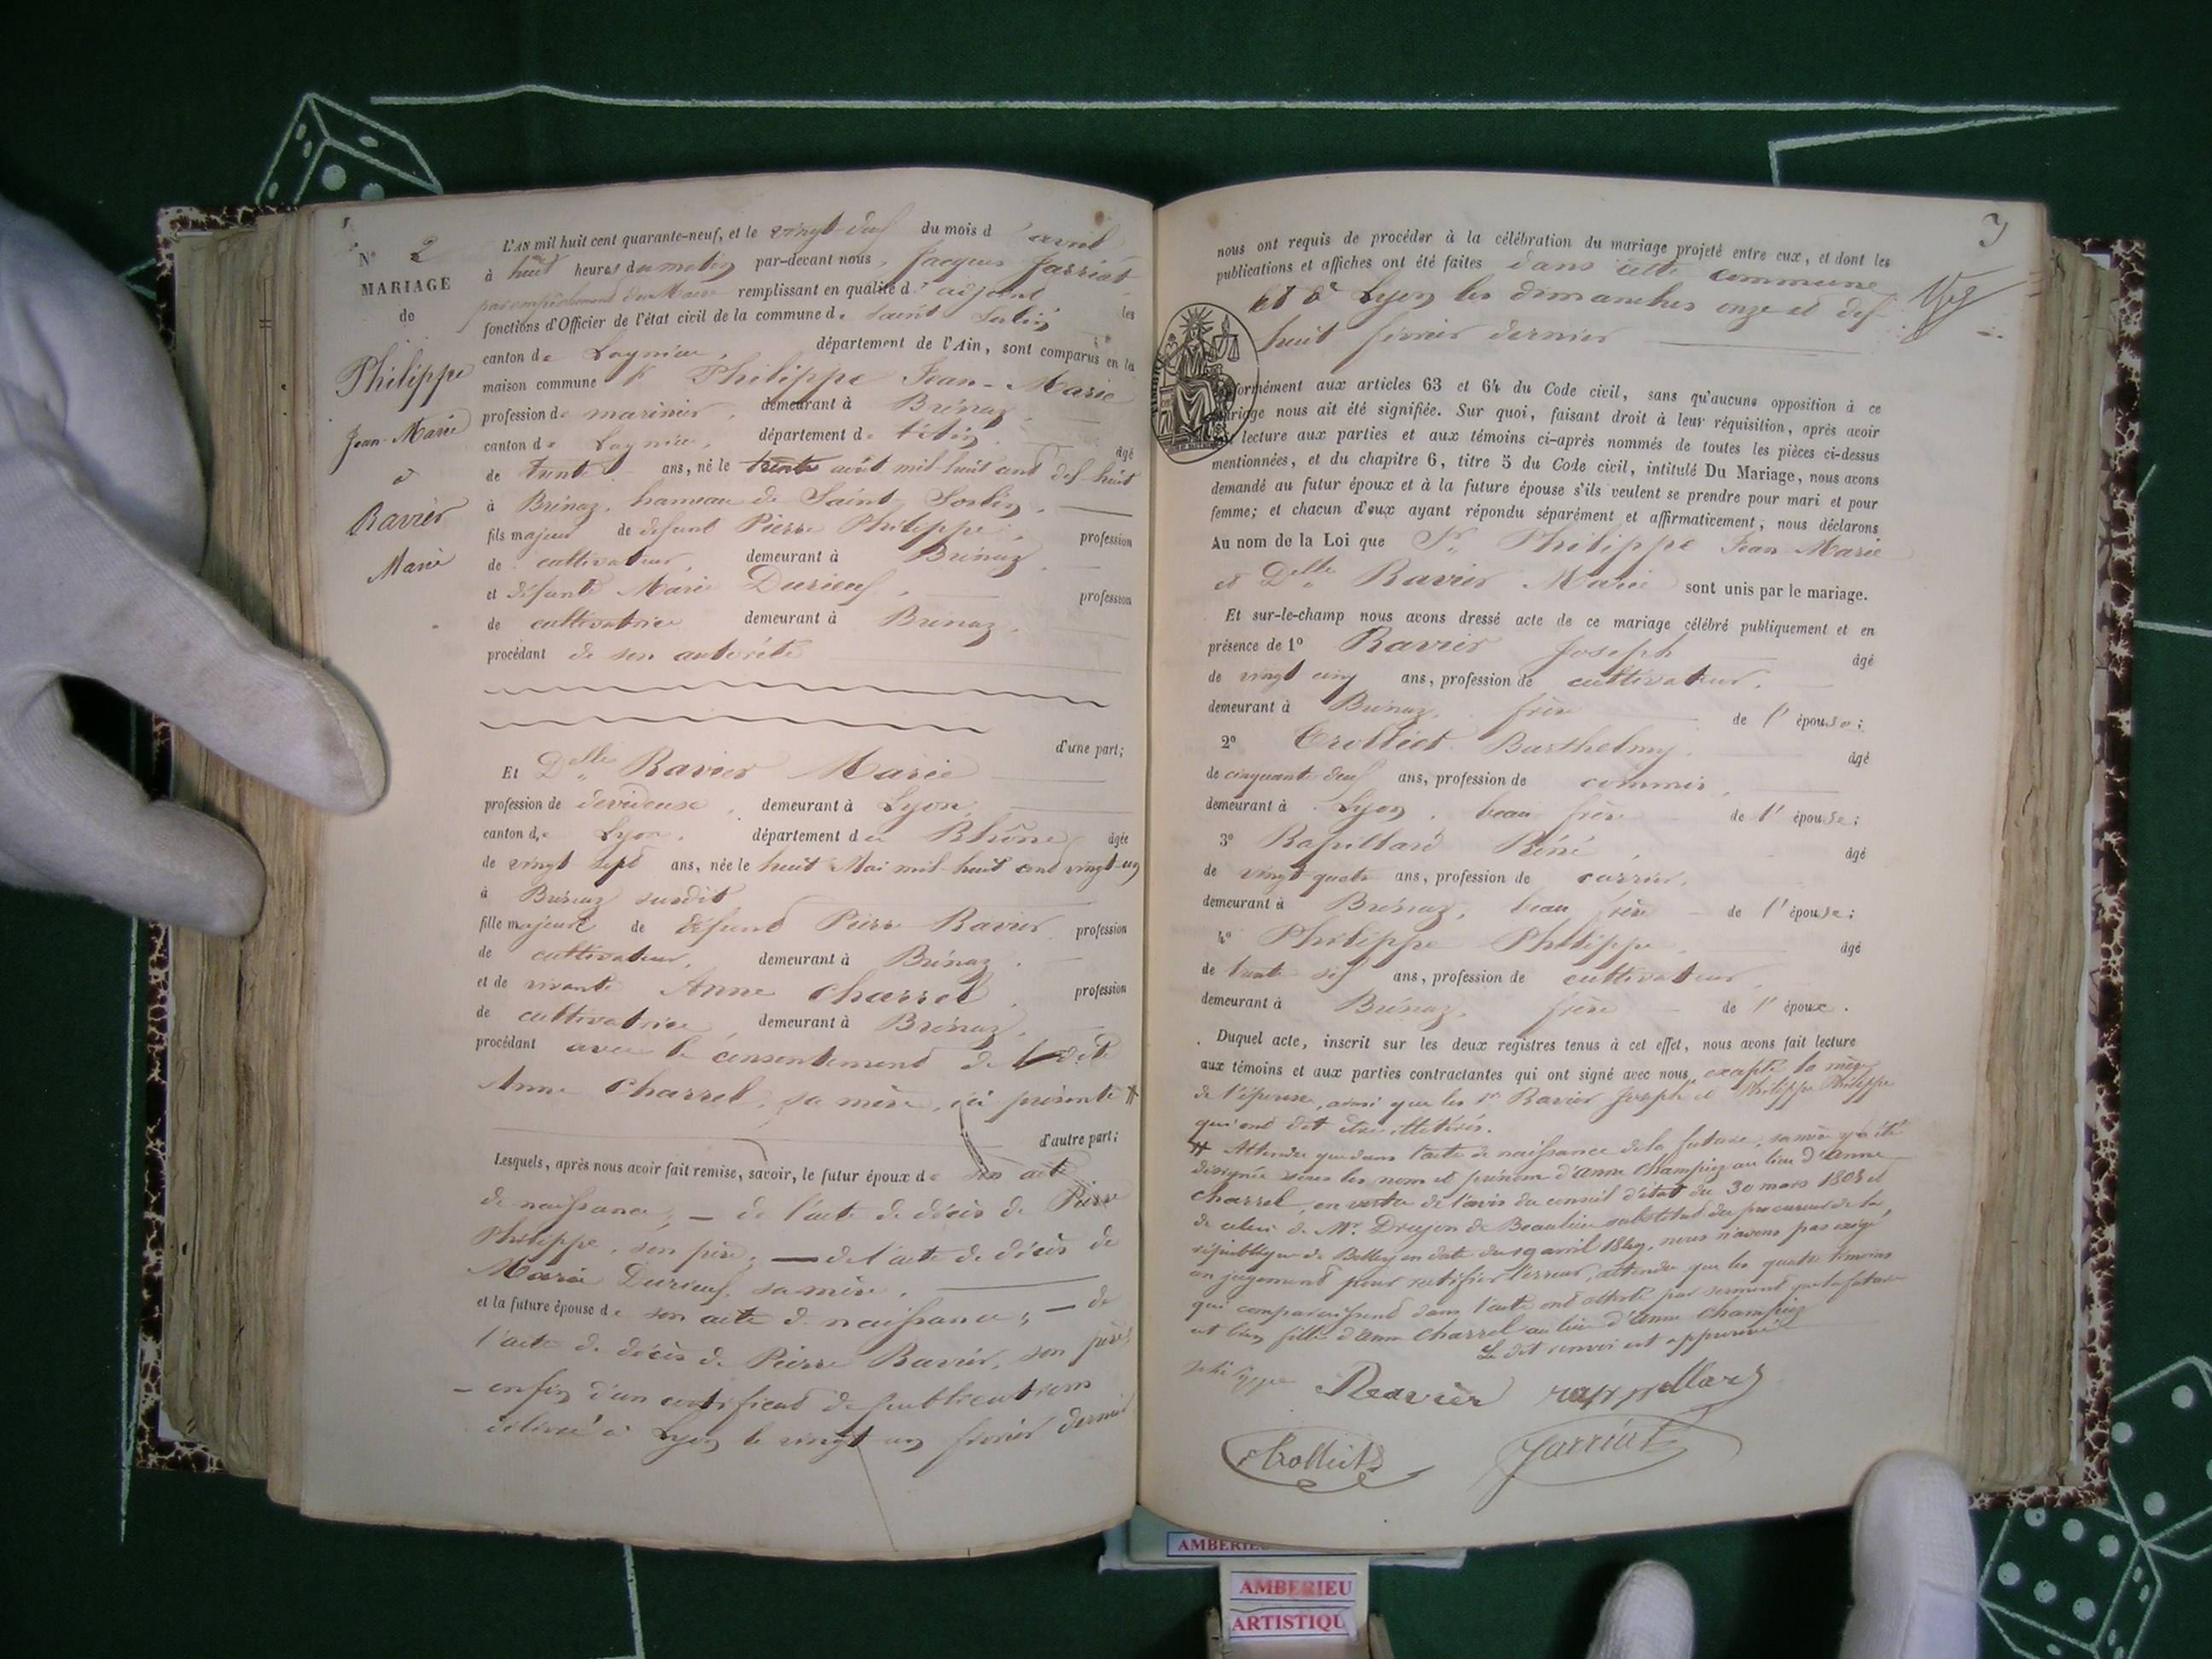 N° 2
MARIAGE
de
Philippe
Jean-Marie
&
Ravier
Marie
L'AN mil huit cent quarante-neuf, et le vingt deux du mois d'avril
à huit heures du matin par-devant nous, Jacques Jarriat
par empêchement du Maire remplissant en qualité d'adjoint les
fonctions d'Officier de l'état civil de la commune de Saint Sorlin
canton de Lagnieu, département de l'Ain, sont comparus en la
maison commune Sr Philippe Jean-Marie
profession de marinier, demeurant à Brénaz,
canton de Lagnieu, département de l'Ain, âgé
de trente ans, né le trente août mil huit cent dix-huit
à Brénaz, hameau de Saint Sorlin,
fils majeur de défunt Pierre Philippe, profession
de cultivateur, demeurant à Brénaz,
et défunte Marie Durieux, profession
de cultivatrice demeurant à Brénaz,
procédant de son autorité
d'une part;
Et Delle Ravier Marie
profession de dévideuse, demeurant à Lyon,
canton de Lyon, département du Rhône, âgée
de vingt sept ans, née le huit Mai mil huit cent vingt-un
à Brénaz susdit
fille majeure de défunt Pierre Ravier profession
de cultivateur, demeurant à Brénaz,
et de vivante Anne Charrel, profession
de cultivatrice, demeurant à Brénaz,
procédant avec le consentement de ladite
Anne Charrel, sa mère, ici présente #
d'autre part;
Lesquels, après nous avoir fait remise, savoir, le futur époux de son acte
de naissance, — de l'acte de décès de Pierre
Philippe, son père; — de l'acte de décès de
Marie Durieux, sa mère,
et la future épouse de son acte de naissance; — de
l'acte de décès de Pierre Ravier, son père,
— enfin d'un certificat de publications
délivré à Lyon le vingt-un février dernier
nous ont requis de procéder à la célébration du mariage projeté entre eux, et dont les
publications et affiches ont été faites dans cette commune
et à Lyon les dimanches onze et dix
huit février dernier
formément aux articles 63 et 64 du Code civil, sans qu'aucune opposition à ce
mariage nous ait été signifiée. Sur quoi, faisant droit à leur réquisition, après avoir
lecture aux parties et aux témoins ci-après nommés de toutes les pièces ci-dessus
mentionnées, et du chapitre 6, titre 5 du Code civil, intitulé Du Mariage, nous avons
demandé au futur époux et à la future épouse s'ils veulent se prendre pour mari et pour
femme; et chacun d'eux ayant répondu séparément et affirmativement, nous déclarons
Au nom de la Loi que Sr Philippe Jean-Marie
et Delle Ravier Marie sont unis par le mariage.
Et sur-le-champ nous avons dressé acte de ce mariage célébré publiquement et en
présence de 1° Ravier Joseph âgé
de vingt cinq ans, profession de cultivateur,
demeurant à Brénaz, frère de l'épouse;
2° Trolliet Barthelmy, âgé
de cinquante deux ans, profession de commis,
demeurant à Lyon, beau frère de l'épouse;
3° Rapillard Réné, âgé
de vingt quatre ans, profession de carrier,
demeurant à Brénaz, beau frère de l'épouse;
4° Philippe Philippe, âgé
de trente six ans, profession de cultivateur,
demeurant à Brénaz, frère de l'époux.
Duquel acte, inscrit sur les deux registres tenus à cet effet, nous avons fait lecture
aux témoins et aux parties contractantes qui ont signé avec nous, excepté la mère
de l'épouse, ainsi que les Srs Ravier Joseph et Philippe Philippe
qui ont dit être illetérés.
# Attendu que dans l'acte de naissance de la future, sa mère y a été
désignée sous les nom et prénom d'anne Champier au lieu d'anne
Charrel, en vertu de l'avis du conseil d'état du 30 mars 1808 et
de celui de Mr. Drujon de Beaulieu substitut du procureur de la
république de Belley en date du 19 avril 1849, nous n'avons pas exigé
un jugement pour rectifier l'erreur, attendu que les quatre témoins
qui comparaissent dans l'acte ont attesté par serment que la future
est bien fille d'anne Charrel au lieu d'anne Champier
Le dit renvoi est approuvé
philippe Ravier rappellard
Trolliet Jarriat
AMBERIEU
AMBERIEU
ARTISTIQU